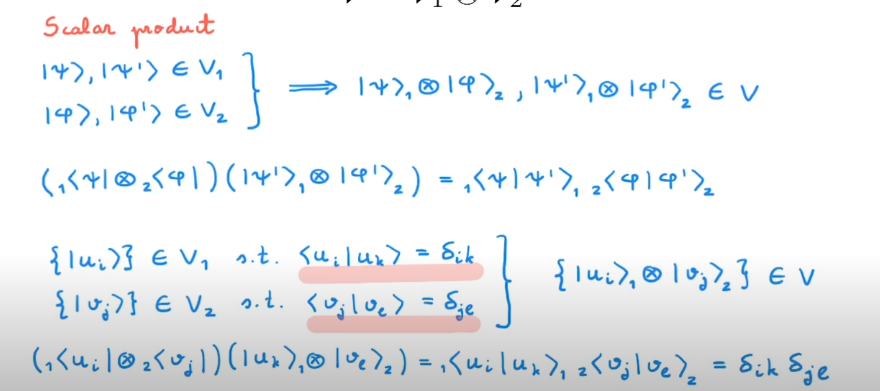 V₁ ⊗ V₂
Scalar product
|ψ⟩, |ψ'⟩ ∈ V₁
|φ⟩, |φ'⟩ ∈ V₂
} ⟹ |ψ⟩₁ ⊗ |φ⟩₂ , |ψ'⟩₁ ⊗ |φ'⟩₂ ∈ V
(₁⟨ψ| ⊗ ₂⟨φ|)(|ψ'⟩₁ ⊗ |φ'⟩₂) = ₁⟨ψ|ψ'⟩₁ ₂⟨φ|φ'⟩₂
{|uᵢ⟩} ∈ V₁ s.t. ⟨uᵢ|uₖ⟩ = δᵢₖ
{|vⱼ⟩} ∈ V₂ s.t. ⟨vⱼ|vₑ⟩ = δⱼₑ
} {|uᵢ⟩₁ ⊗ |vⱼ⟩₂} ∈ V
(₁⟨uᵢ| ⊗ ₂⟨vⱼ|)(|uₖ⟩₁ ⊗ |vₑ⟩₂) = ₁⟨uᵢ|uₖ⟩₁ ₂⟨vⱼ|vₑ⟩₂ = δᵢₖ δⱼₑ